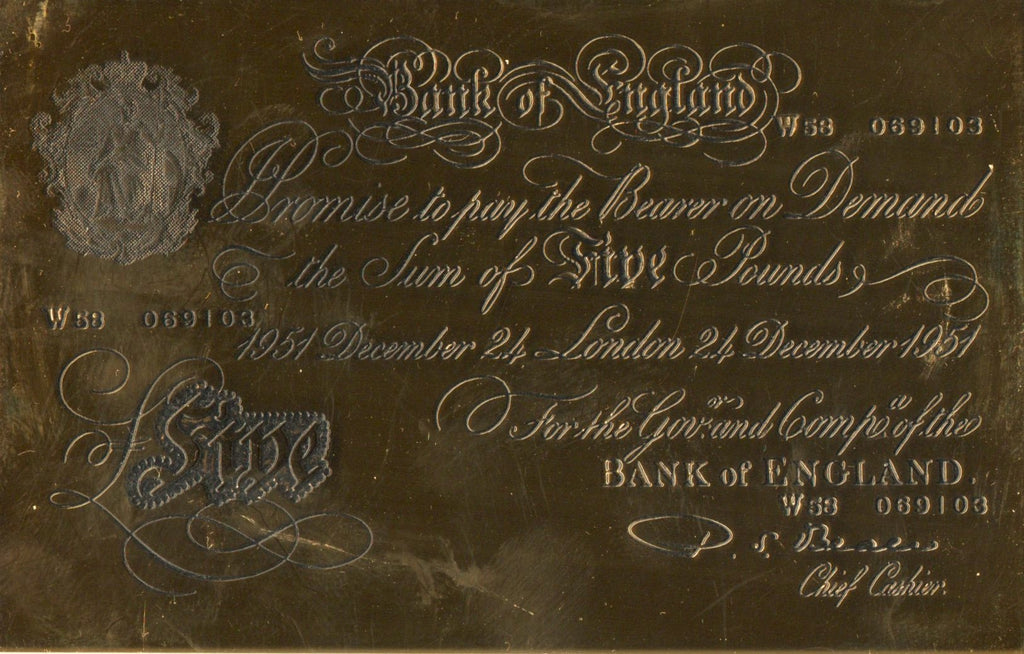 Bank of England
W53 069103
I Promise to pay the Bearer on Demand
the Sum of Five Pounds
W53 069103
1951 December 24 London 24 December 1951
For the Govr. and Compa. of the
Five
BANK of ENGLAND.
W53 069103
P. S. Beale
Chief Cashier.